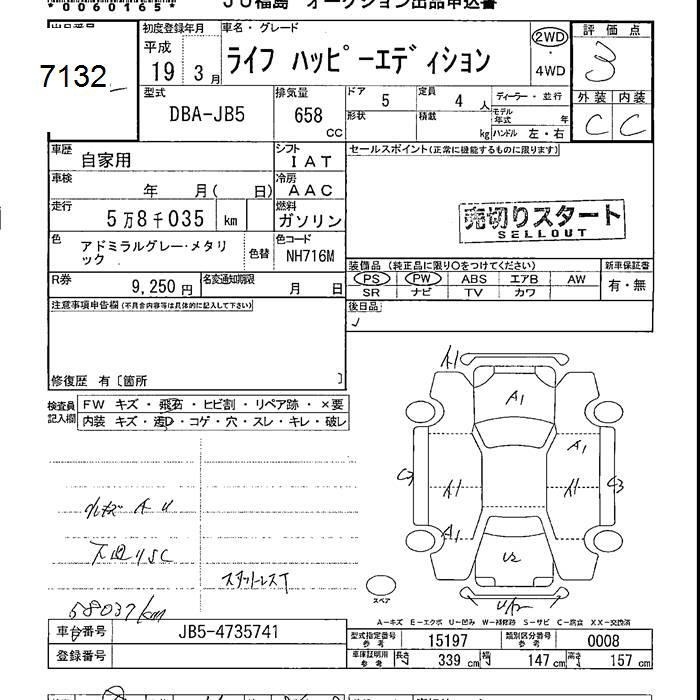 *0060165*
JU福島 オークション出品申込書
出品番号
7132
初度登録年月
平成
19 3 月
車名・グレード
ライフ ハッピーエディション
2WD
・
4WD
評価点
3
外装 内装
C C
型式
DBA-JB5
排気量
658
CC
ドア 5
定員 4 人
ディーラー・並行
形状
積載 kg
モデル年式 年
ハンドル 左・右
車歴
自家用
シフト
IAT
セールスポイント(正常に機能するものに限ります)
車検
年 月( 日)
冷房
AAC
走行
5万8千035 km
燃料
ガソリン
売切りスタート
SELLOUT
色
アドミラルグレー・メタリ
ック
色替
色コード
NH716M
装備品(純正品に限り○をつけてください)
新車保証書
PS PW ABS エアB AW
SR ナビ TV カワ
有・無
R券
9,250 円
名変通知期限
月 日
注意事項申告欄(不具合内容等は具体的に記入して下さい)
後日品
修復歴 有〔箇所 〕
検査員
記入欄
FW キズ・飛石・ヒビ割・リペア跡・×要
内装 キズ・汚れ・コゲ・穴・スレ・キレ・破レ
A1
A1
A1
A1
A1
A1
U2
スタットレスT
58037km
スペア
A-キズ E-エクボ U-凹み W-補修跡 S-サビ C-腐食 XX-交換済
車台番号
JB5-4735741
型式指定番号
参考
15197
類別区分番号
参考
0008
登録番号
車庫証明用
参考
長さ 339 cm 幅 147 cm 高さ 157 cm